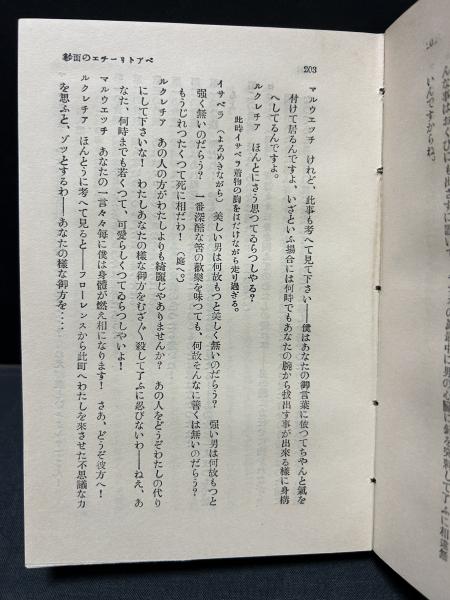 203
ベアトリーチエの面紗
マルウエッチ けれど、此事も考へて見て下さい――僕はあなたの御言葉に依つてちやんと氣を
付けて居るんですよ、いざといふ場合には何時でもあなたの腕から拔出す事が出來る樣に身構
へしてるんですよ。
ルクレチア ほんとにさう思つてゐらつしやる？
此時イサベラ着物の胸をはだけながら走り過ぎる。
イサベラ （よろめきながら）美しい男は何故もつと美しく無いのだらう？ 強い男は何故もつと
強く無いのだらう？ 一番深酷な筈の歡樂を味つても、何故そんなに善くは無いのだらう？
もうじれつたくつて死に相だわ！（庭へ。）
ルクレチア あの人の方がわたしよりも綺麗ぢやありませんか？ あの人をどうぞわたしの代り
にして下さいな！ わたしあなたの樣な御方をむざ〱殺して了ふに忍びないわ――ねえ、あ
なた、何時までも若くつて、可愛らしくつてゐらつしやいよ！
マルウエッチ あなたの一言々々每に僕は身體が燃え相になります！ さあ、どうぞ彼方へ！
ルクレチア ほんとうに考へて見ると――フローレンスから此町へわたしを來させた不思議な力
を思ふと、ゾッとするわ――あなたの樣な御方を‥‥
いんですからね。